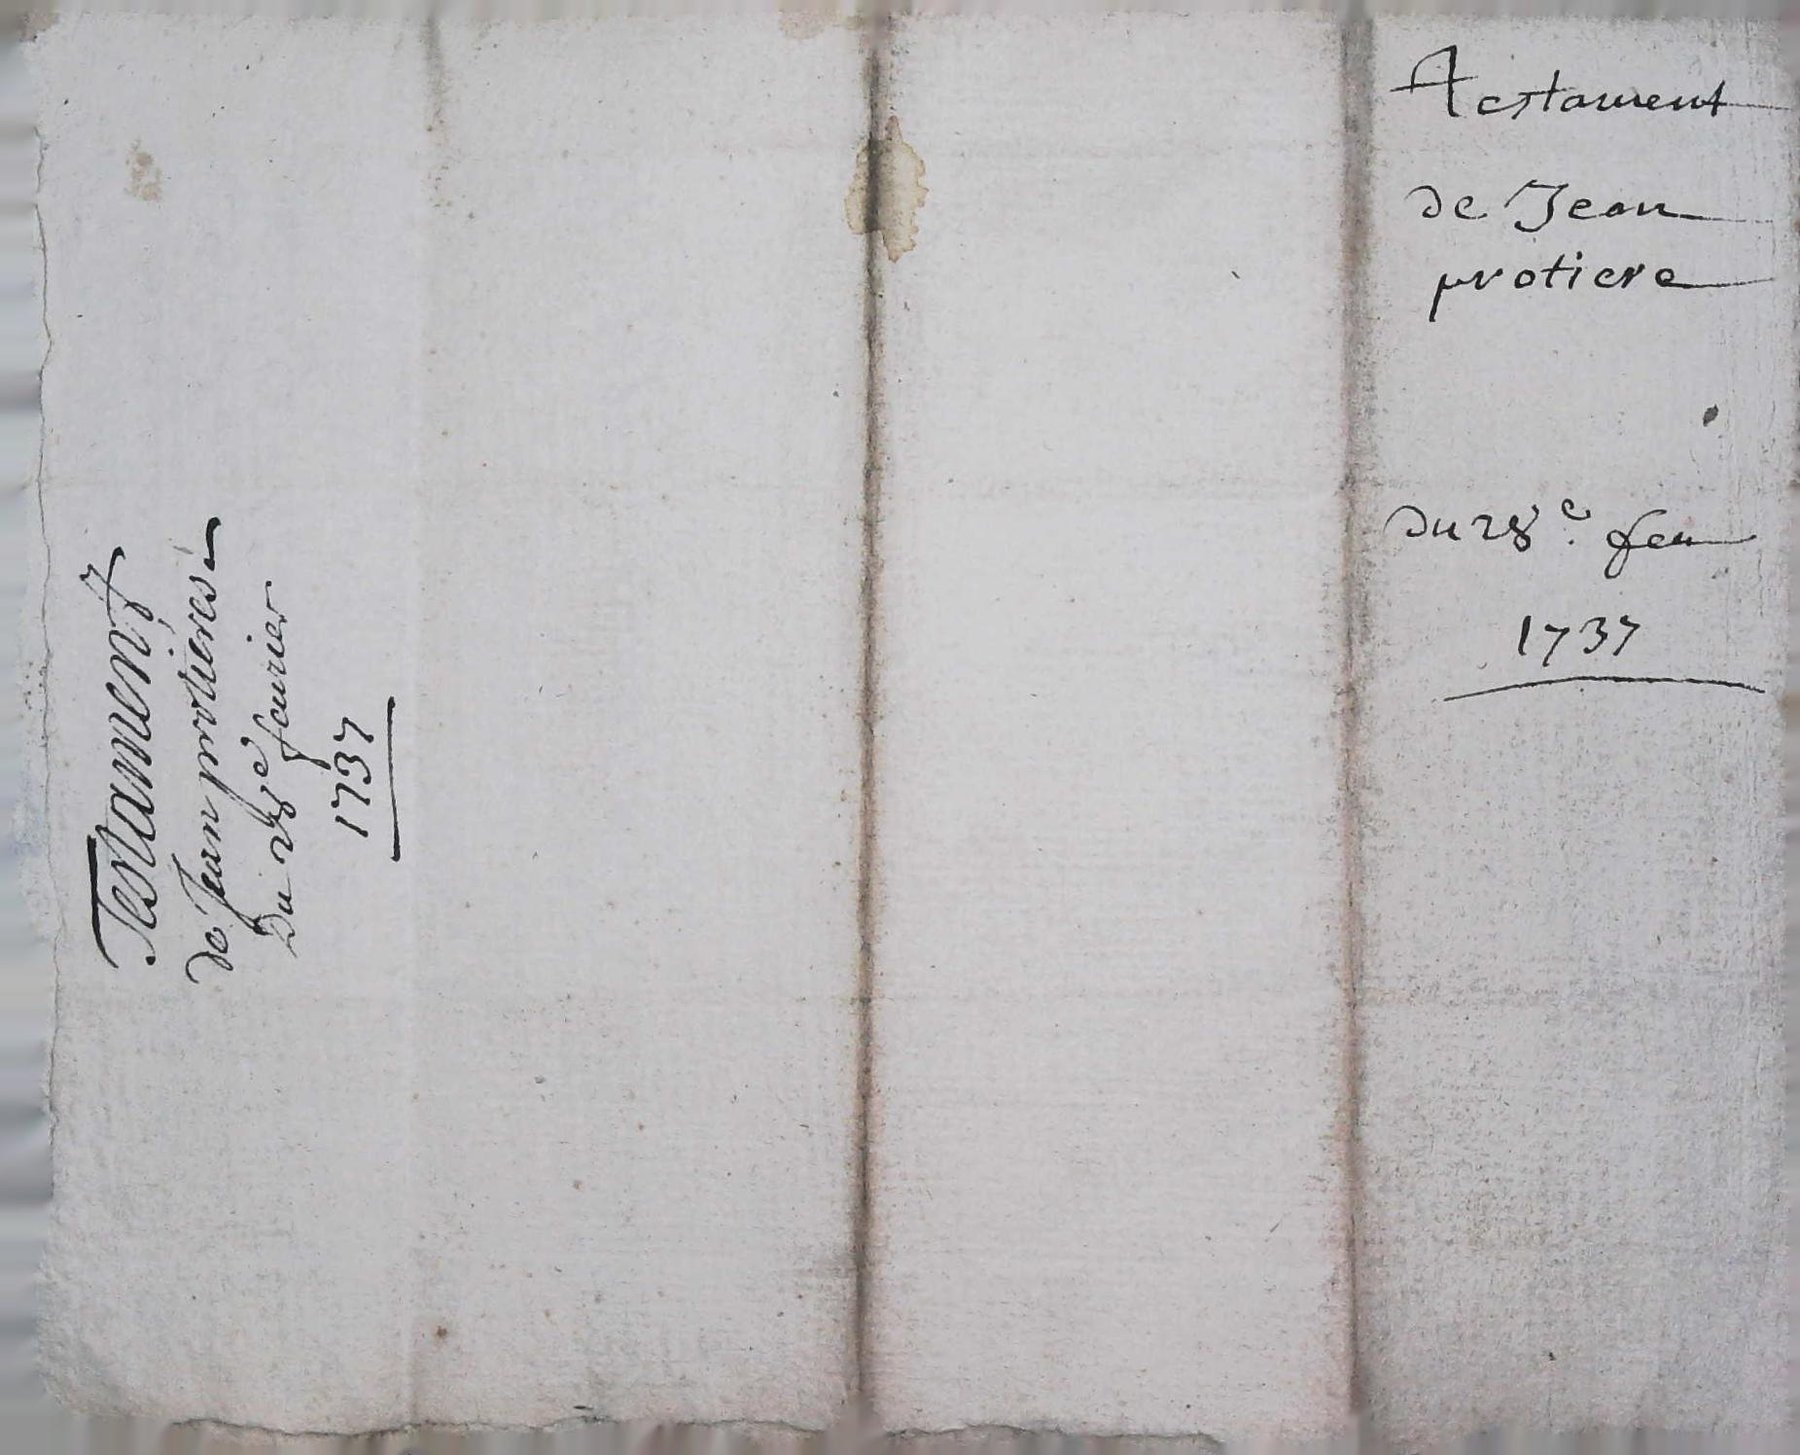 Testament
de Jean
protiere
du 28e. feu
1737
Testament
de Jean protieres
Du 28e feurier
1737